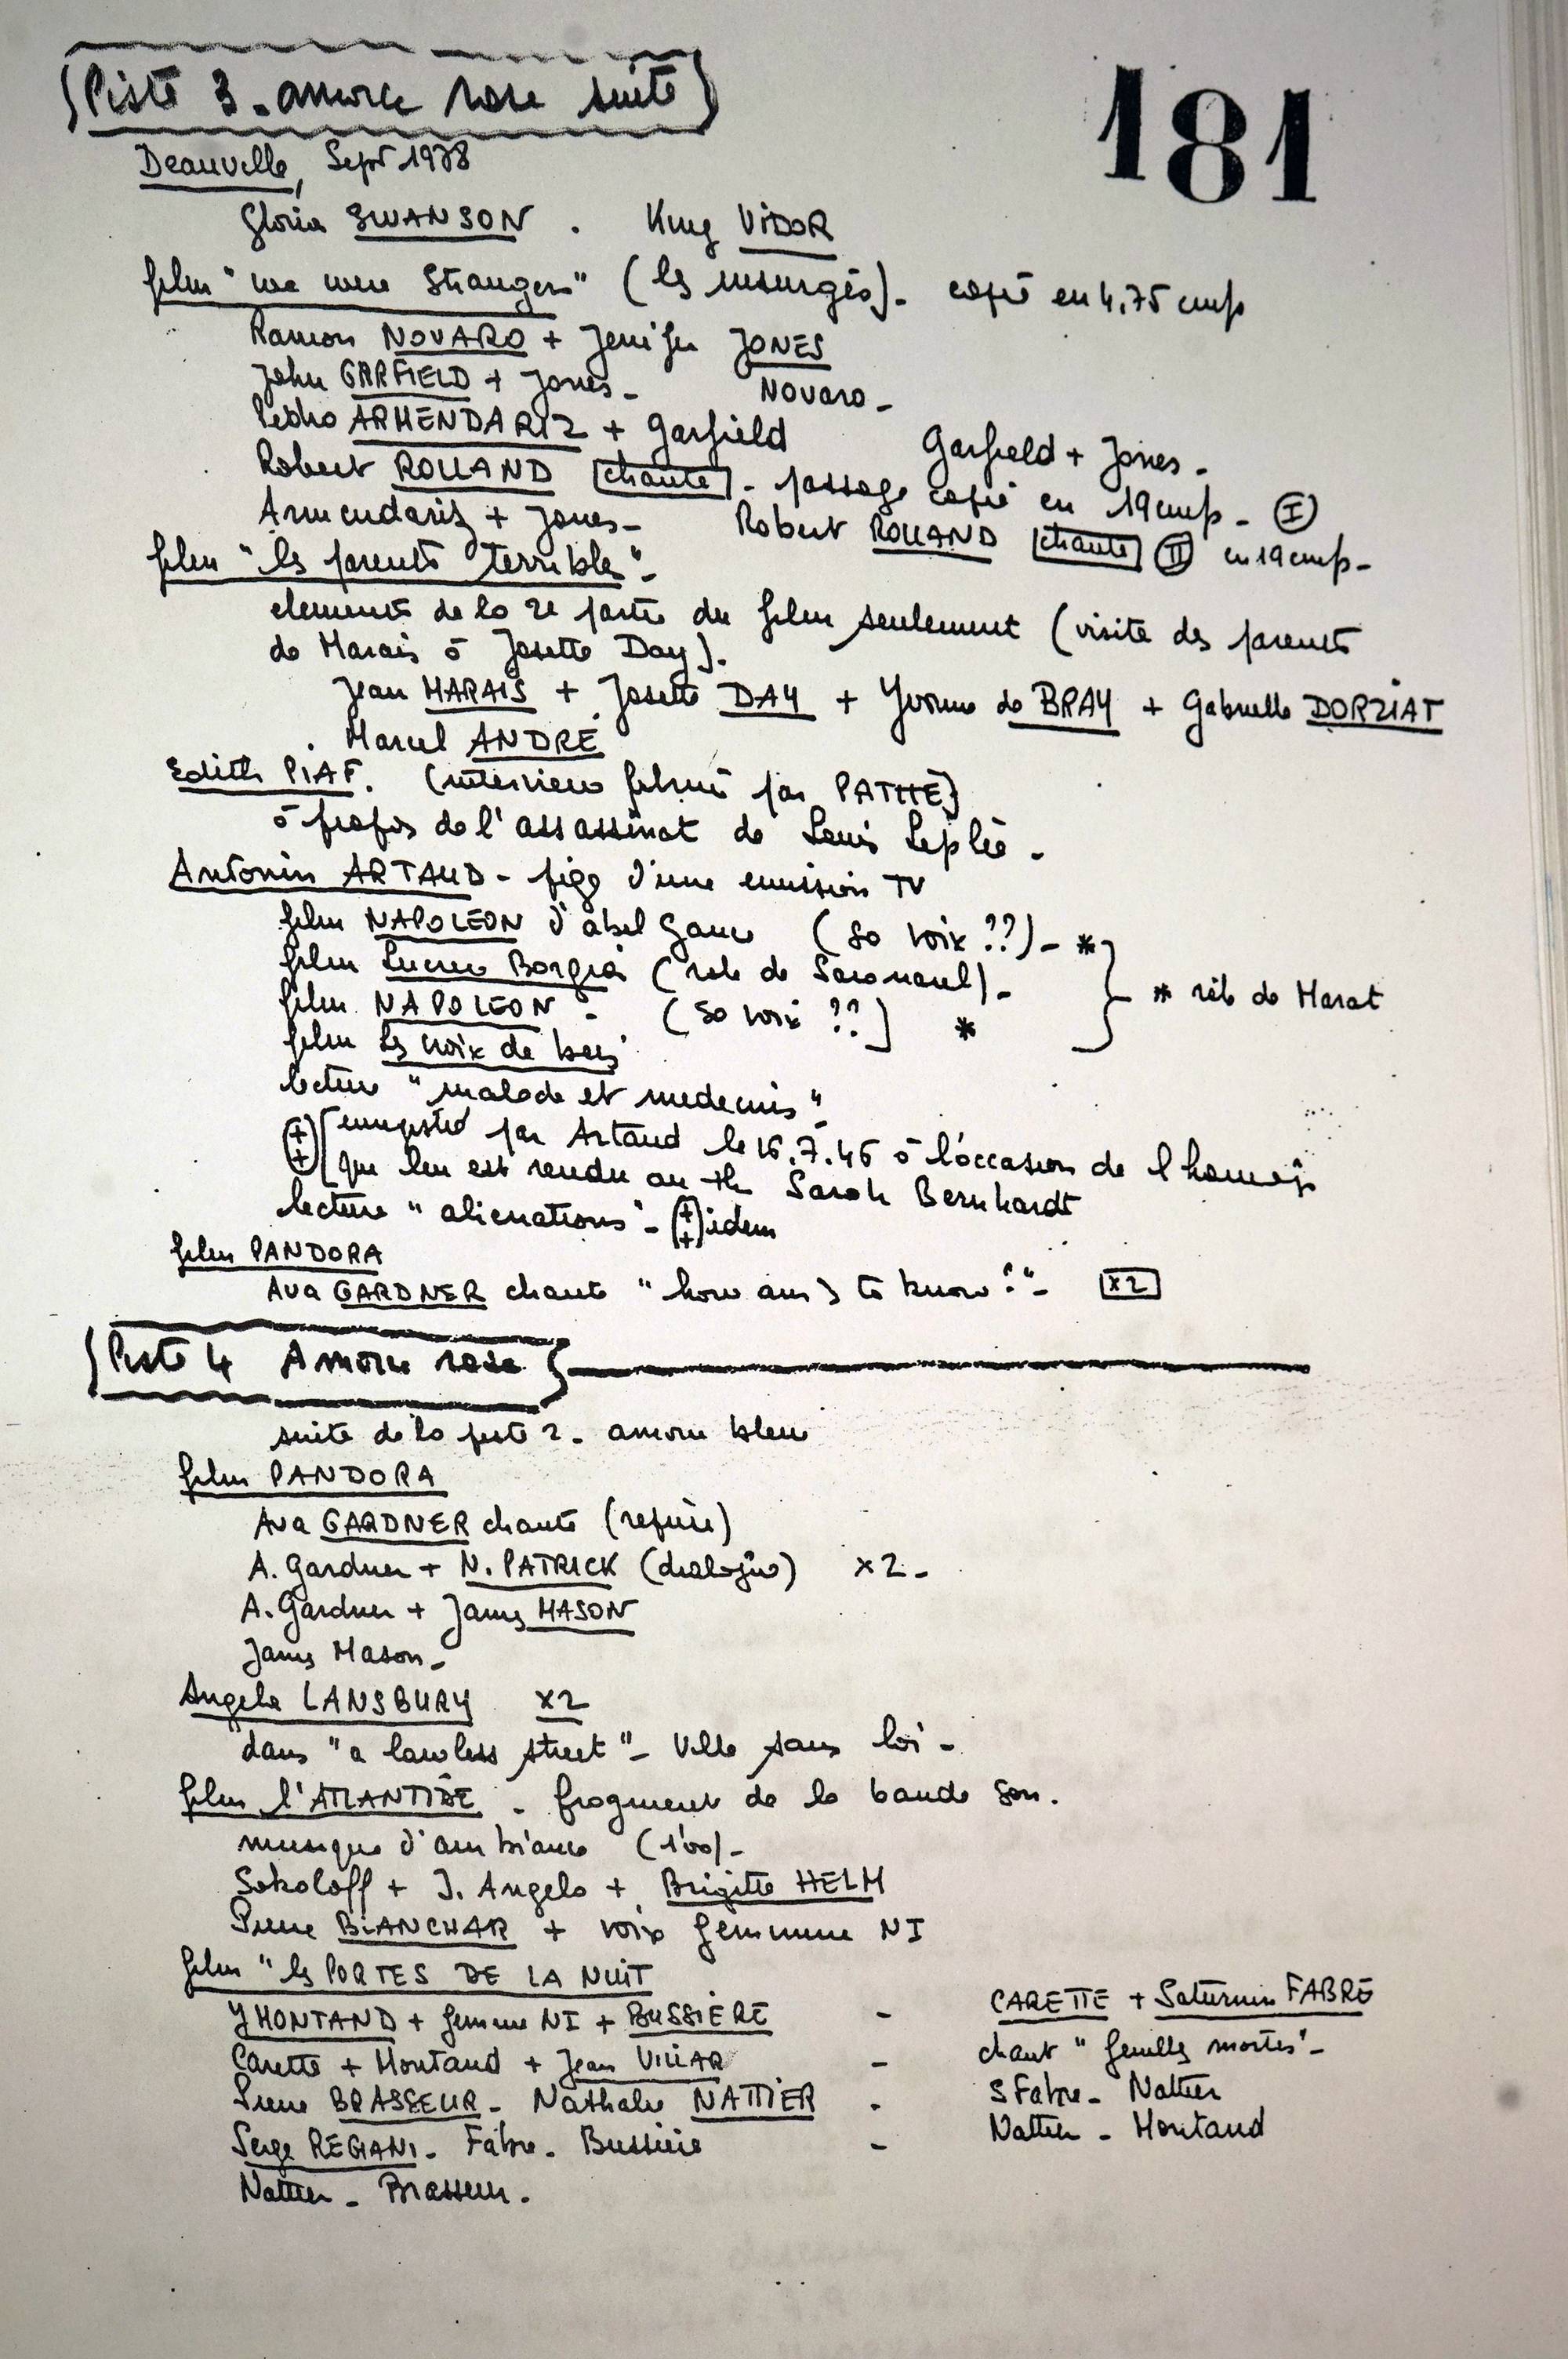 Piste 3. amorce rose suite
181
Deauville, Sept 1978
Gloria SWANSON. King VIDOR
film "we were Strangers" (les insurgés). copié en 4,75 cmps
Ramon NOVARO + Jenifer JONES
John GARFIELD + Jones - Novaro -
Pedro ARMENDARIZ + Garfield Garfield + Jones -
Robert ROLLAND chante - passage copié en 19 cmps - I
Armendariz + Jones - Robert ROLLAND chante II en 19 cmps -
film "les parents terribles" -
elements de la 2e partie du film seulement (visite des parents
de Marais à Josette Day).
Jean MARAIS + Josette DAY + Yvonne de BRAY + Gabrielle DORZIAT
. Marcel ANDRÉ
Edith PIAF. (interview filmé par PATHÉ)
à propos de l'assassinat de Louis Leplée -
Antonin ARTAUD - pige d'une emission TV
film NAPOLEON d'abel Gance (sa voix ??) - *
film Lucrece Borgia (role de Savonarol) - * rôle de Marat
film NAPOLEON - (sa voix ??) *
film les croix de bois
lecture "malade et medecins" -
(++) enregistré par Artaud le 16.7.46 à l'occasion de l'homage
que lui est rendu au th Sarah Bernhardt
lecture "alienations" - (++) idem
film PANDORA
Ava GARDNER chante "how am I to know?" - x2
Piste 4 Amorce rose
suite de la piste 2 - amorce bleue
film PANDORA
Ava GARDNER chante (reprise)
A. Gardner + N. PATRICK (dialogue) x2 -
A. Gardner + James MASON
James Mason -
Angela LANSBURY x2
dans "a lawless street" - Ville sans loi -
film l'ATLANTIDE - fragment de la bande son.
musique d'ambiance (1'00) -
Sokoloff + J. Angelo + Brigitte HELM
Pierre BLANCHAR + voix femmme NI
film "les PORTES DE LA NUIT
Y MONTAND + femme NI + BUSSIÈRE - CARETTE + Saturnin FABRE
Carette + Montand + Jean VILLAR - chant "feuilles mortes" -
Pierre BRASSEUR - Nathalie NATTIER . S Fabre - Nattier
Serge REGIANI - Fabre - Bussière - Nattier - Montand
Nattier - Brasseur.